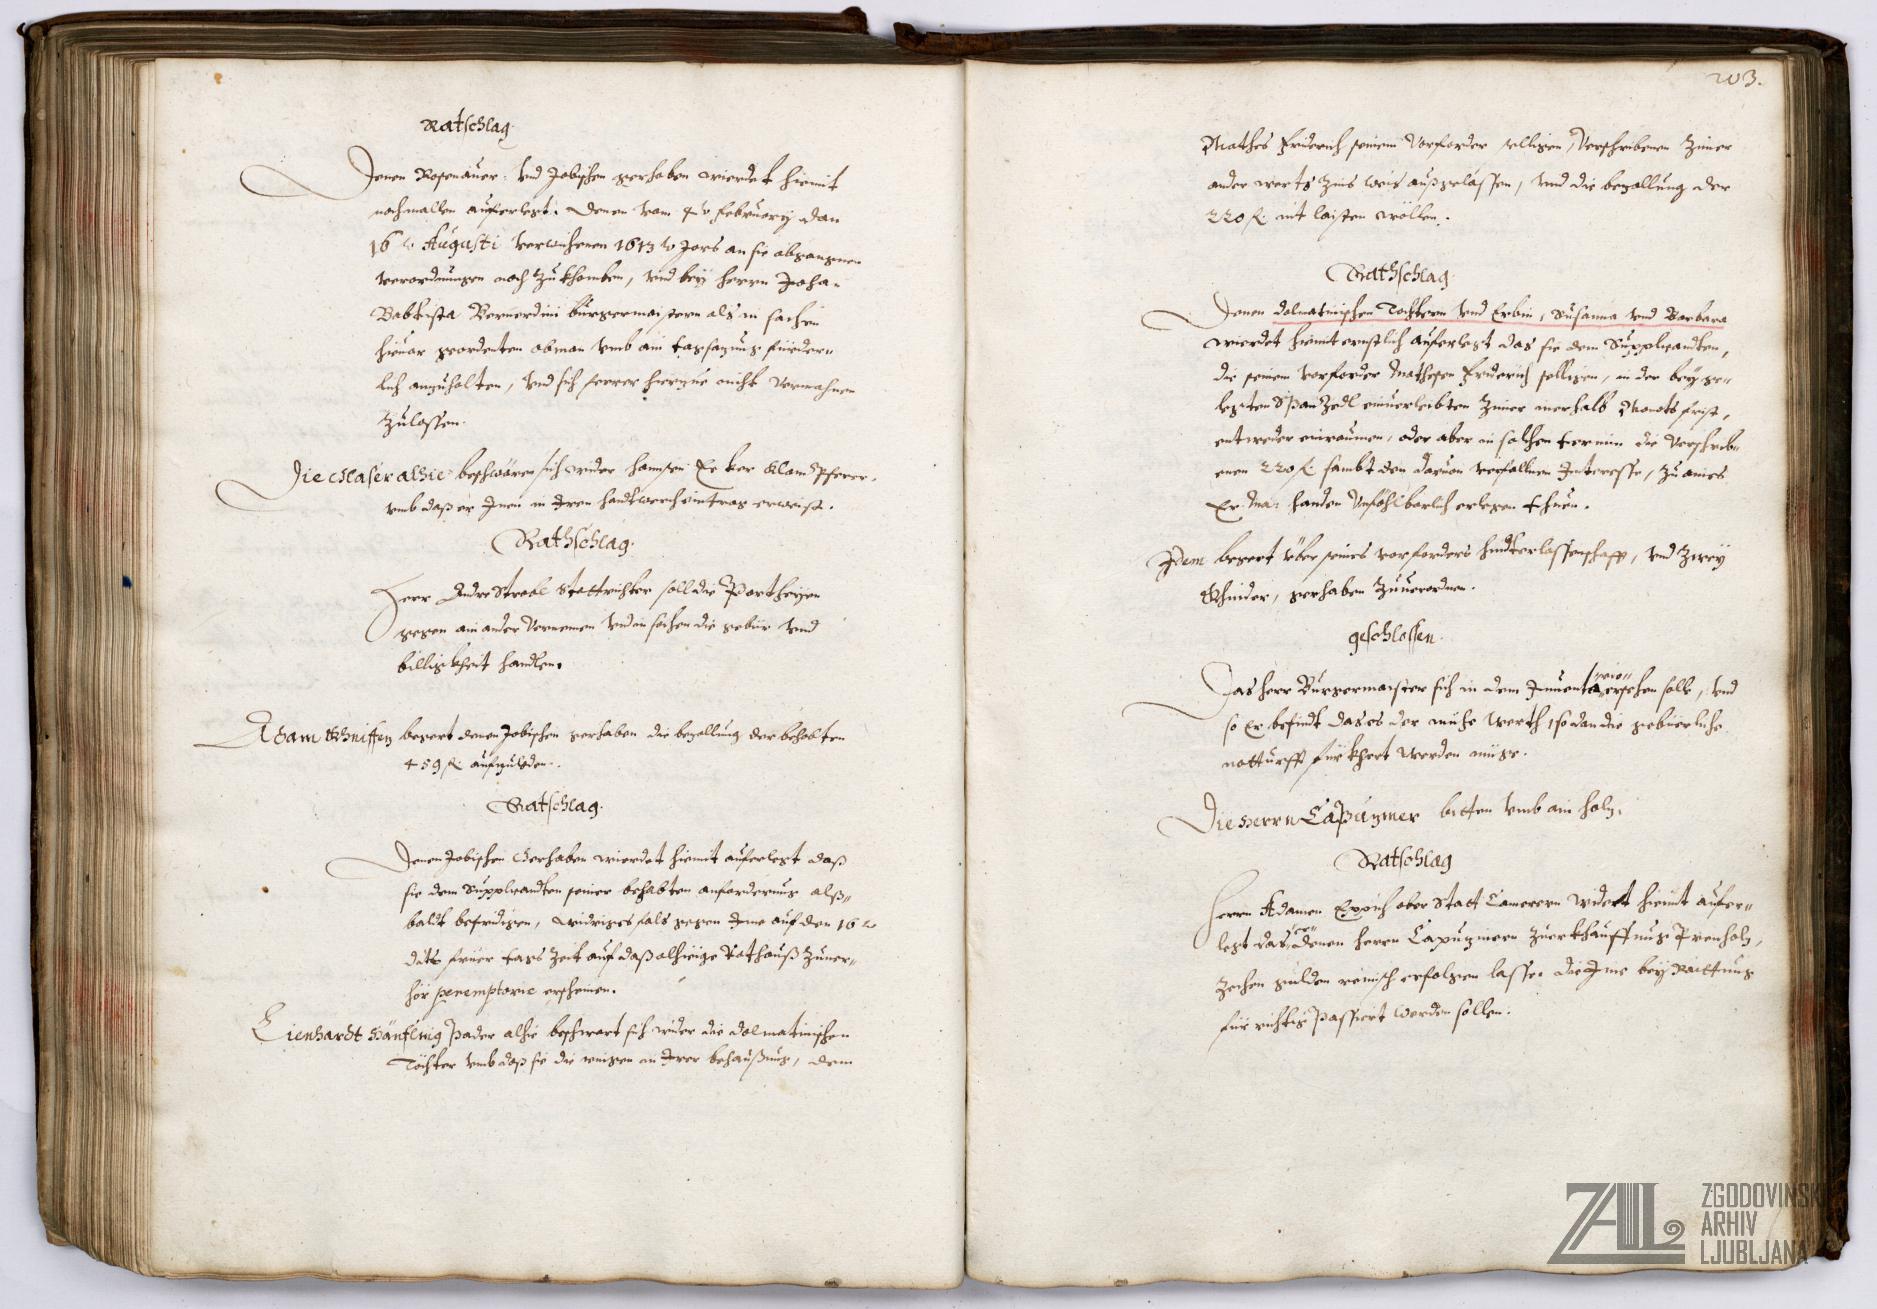 Ratschlag.
Denen Rosenauer: vnd Jobischen gerhaben wierdet hiemit
nochmallen auferlegt: denen vom Februarij dan
16 Augusti verwichenen 1613 Jars an sie abgangnen
verordnungen nach zukhomben, vnd bey herrn Joha:
Babtista Bernerdini burgermaistern als in sachen
hieuor geordenten obman vmb ain tagsazung fürder=
lich anzuhalten, vnd sich ferrer hierzue nicht vermahnen
zulassen.
Die Glaser alhie beschwären sich wider hannsen klampferer,
vmb daß er Inen in Iren handtwerch eintrag erweist.
Rathschlag.
Herr Andre Strobl Stattrichter soll die Partheyen
gegen ainander vernemen vnd in sachen die gebür vnd
billigkheit handlen.
Adam begert denen Jobischen gerhaben die bezallung der behabten
459 f. aufzuladen.
Ratschlag.
Denen Jobischen Gerhaben wierdet hiemit auferlegt daß
sie dem Supplicandten seiner behabten anforderung alß=
baldt befridigen, widriges fals gegen Ime auf den 16
dits früer tags Zeit auf daß alhieige Rathauß zuuer=
hör peremptorie erscheinen.
Lienhardt Hänfling Pader alhie beschwart sich wider die dolmatinischen
Töchter vmb daß sie die wenigen in Irer behaußung, dem
203.
Mathes Friderich seinem Vorforder selligen, Verschribenen Zimer
ander werts Zins weis außgelassen, vnd die bezallung der
220 f. nit laisten wöllen.
Rathschlag.
Denen dolmatinischen Töchtern vnd Erbin, Susanna vnd Barbara
wierdet hiemit ernstlich auferlegt das sie dem Supplicandten,
die seinem Vorforder Mathesen Friderich selligen, in der beyge=
legten Span Zedl einuerleibten Zimer inerhalb Monats frist,
entweder einraumen, oder aber in solchen termin die Verschrib=
enen 220 f. sambt den dauon verfallnen Interesse, zu aines
Er: Ma: handen Vnföhlbarlich erlegen thuen.
Idem begert über seines vorforders hinderlassenschafft, vnd zwey
Khinder, gerhaben zuuerordnen.
geschlossen.
Das herr Burgermaister sich in dem Inuentario ersehen solle, vnd
so Er befindt das es der mühe werth, so dan die gebüerliche
notturfft fürkhert werden müge.
Die Herrn Capuziner bitten vmb ain holz.
Ratschlag
Herrn Adamen Eppich ober Statt Camerern wirdet hiemit aufer=
legt das er denen herrn Capuzinern zuerkhauffung Prenholz,
Zechen gulden reinisch erfolgen lasse. die Ime bey Raittung
für richtig Passiert werden sollen.
ZAL
ZGODOVINSKI
ARHIV
LJUBLJANA